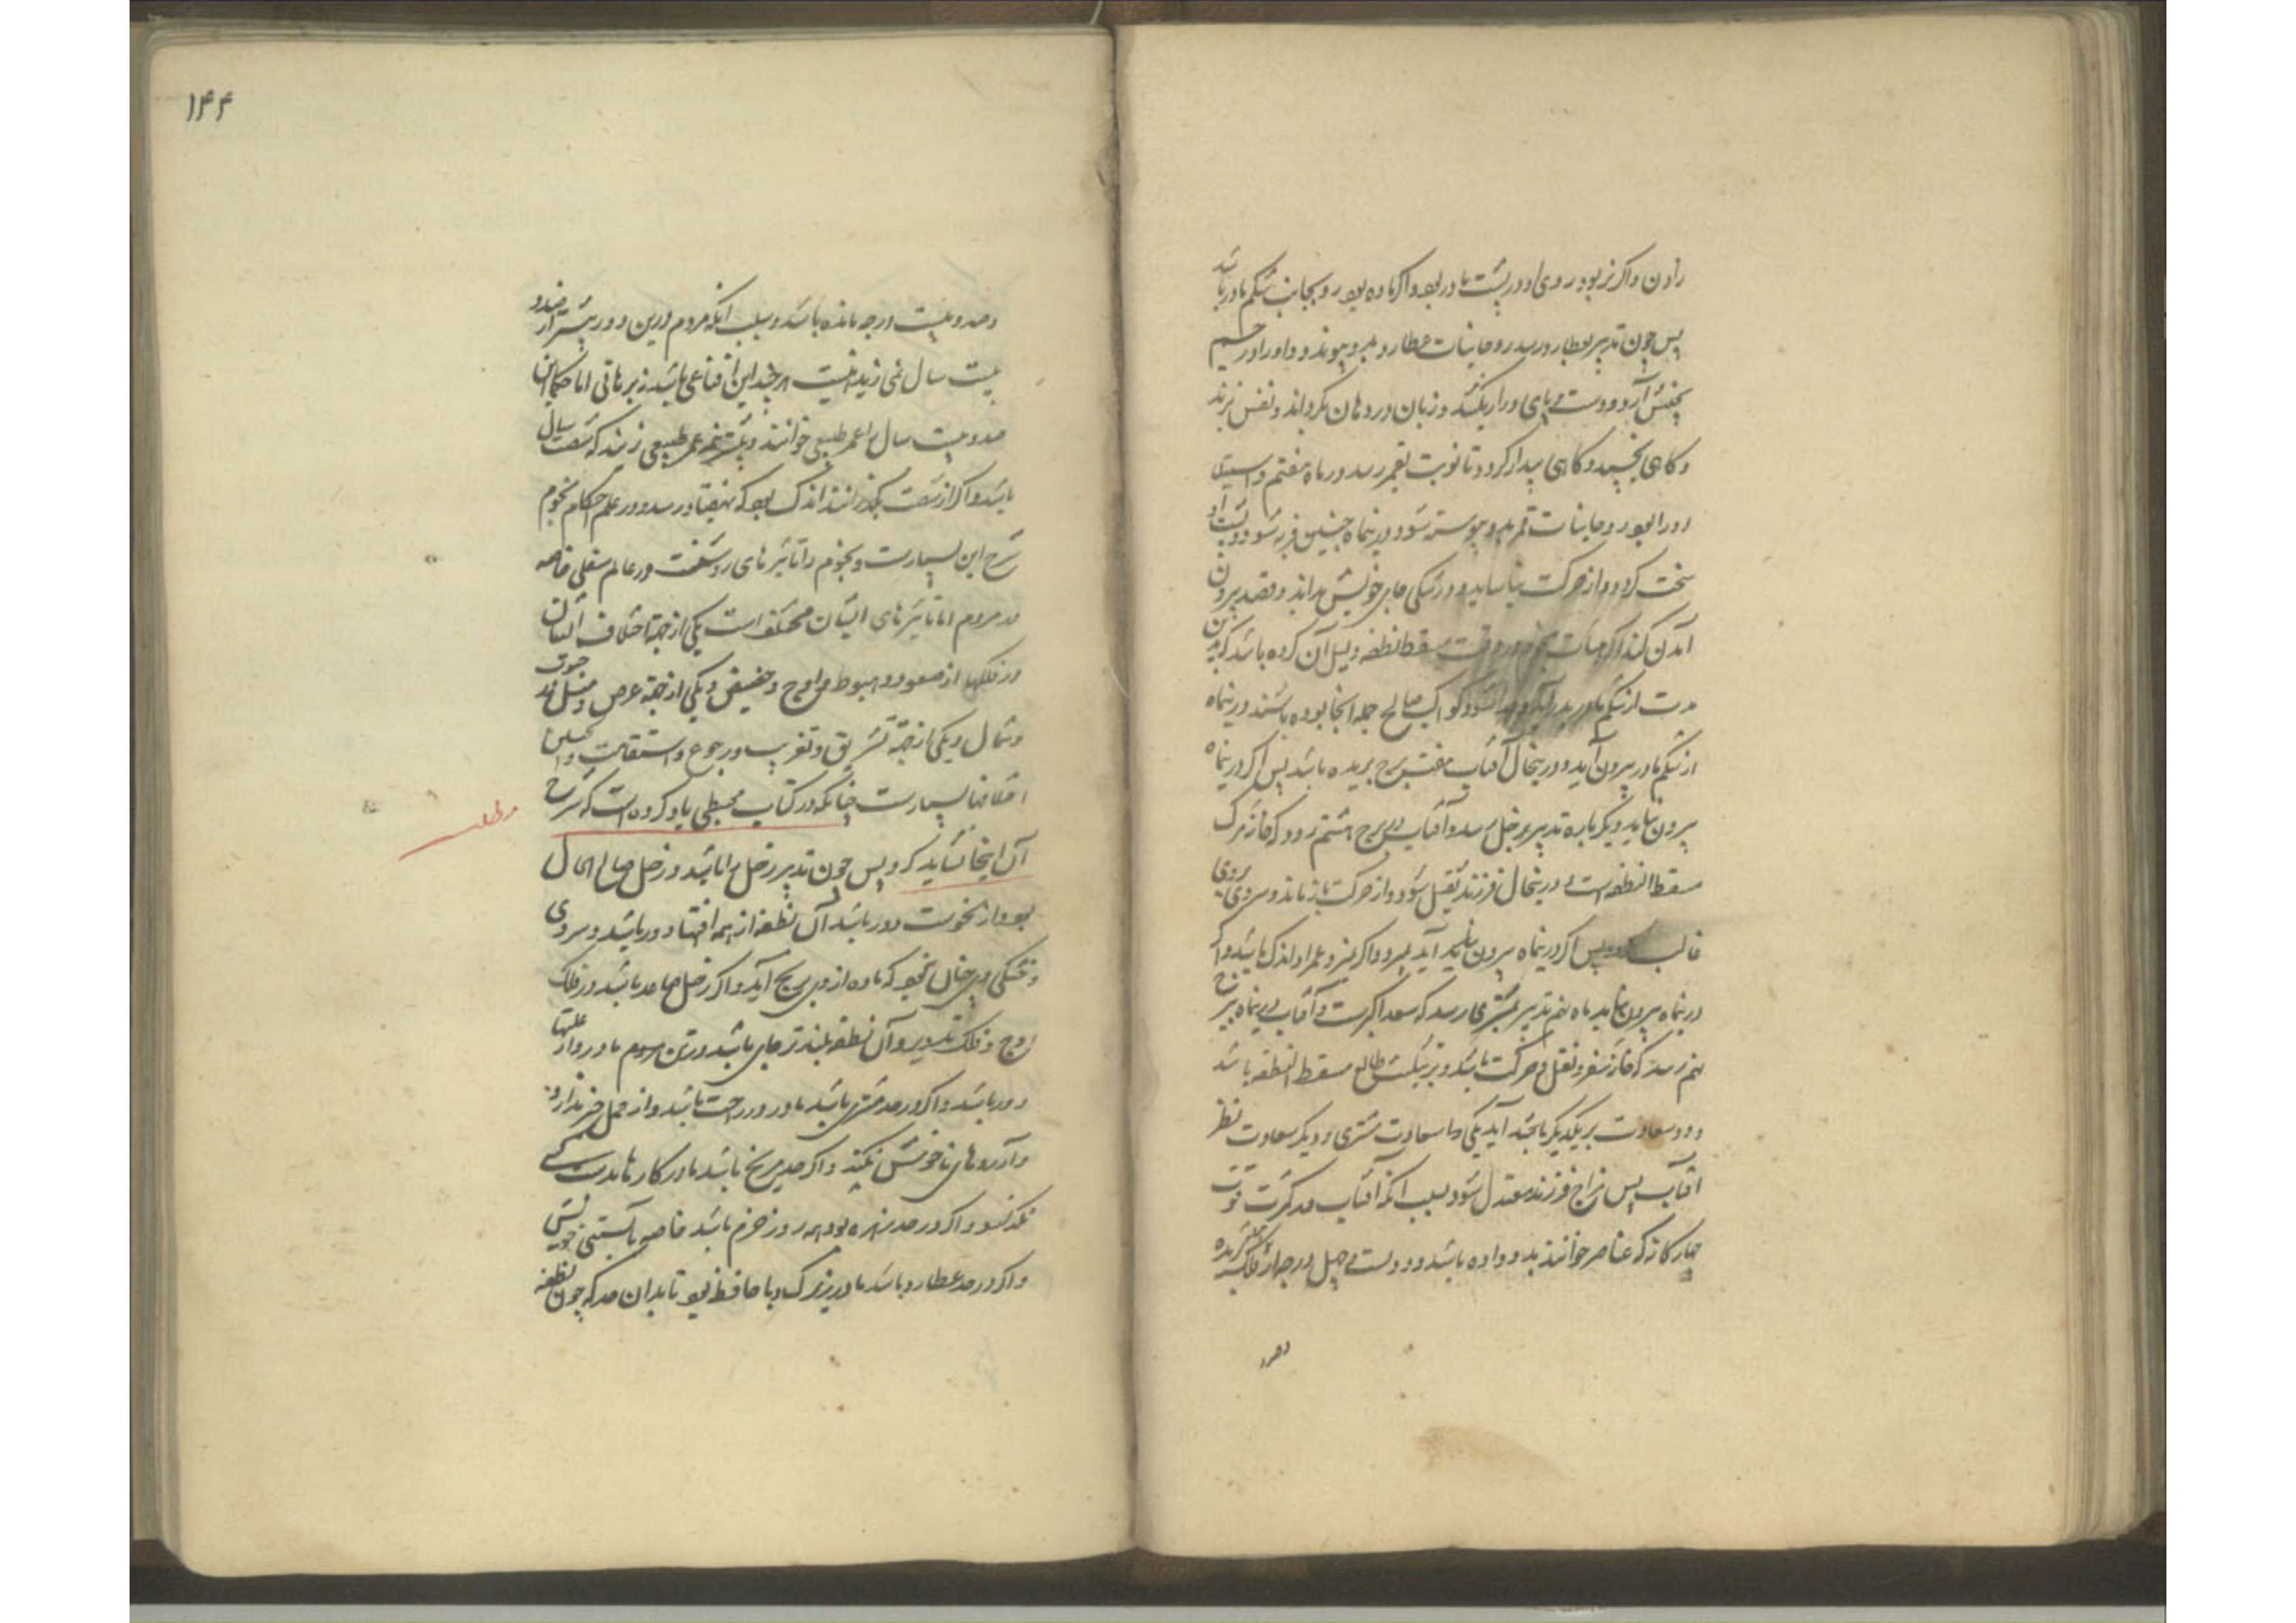 زادن و اگر نر بود روی او در پشت مادر بود و اگر ماده بود رو بجانب شکم مادر باشد
پس چون تدبیر بعطارد رسد روحانیات عطارد بدو پیوندد و او را در جسم
بجنبش آرد و دست و پای دراز بکشد و زبان در دهان بگرداند و نفس بزند
و گاهی بخسپد و گاهی بیدار گردد تا نوبت بقمر رسد در ماه هفتم و
او را بود روحانیات قمر بدو پیوسته شود درینماه جنین فربه شود و پشت او
سخت گردد و از حرکت بیاساید و در تنگی جای خویش بداند و قصد بیرون
آمدن کند اگر وقت سقط نطفه دلیل آن کرده باشد که بدین
مدت از شکم مادر بدر آید و کواکب صالح جمله آنجا بوده باشند درینماه
از شکم مادر بیرون آید و درینحال آفتاب هفتم برج بریده باشد پس اگر درینماه
بیرون نیاید دیگر باره تدبیر بزحل رسد و آفتاب در برج هشتم رود که خانهٔ مرگ
مسقط النطفه است و درینحال فرزند ثقیل شود و از حرکت باز ماند و سردی بروی
غالب پس اگر درینماه بیرون آید بمیرد و اگر نمیرد عمر او اندک باشد و اگر
درینماه بیرون نیاید ماه نهم تدبیر بمشتری رسد که سعد اکبرست و آفتاب درینماه ببرج
نهم رسد که خانهٔ سفر و نقل و حرکت باشد و طالع مسقط النطفه باشد
و دو سعادت بر یکدیگر باخته آید یکی را سعادت مشتری و دیگر سعادت نظر
آفتاب پس مزاج فرزند معتدل شود بسبب آنکه آفتاب مدبرست قوت
چهارگانه که عناصر خوانند بدو داده باشد و دویست و چهل درجه از فلک بریده
و صد
۱۴۴
و صد و بیست درجه مانده باشد و بسبب آنکه مردم درین دور بیشتر از صد و
بیست سال نمی‌زیند هرچند این اقناعی باشد نه برهانی اما حکما این
صد و بیست سال را عمر طبیعی خوانند و بیشتر نیمه عمر طبیعی زیند که شصت سال
باشد و اگر از شصت بگذرانند اندک بود که بهفتاد رسد و در علم احکام نجوم
شرح این بسیارست و نجوم را تاثیرهای روشنست در عالم سفلی خاصه
در مردم اما تاثیرهای ایشان مختلف است یکی از جهة اختلاف ایشان
در فلکها از صعود و هبوط و اوج و حضیض و یکی از جهة عرض و میل در جنوب
و شمال و یکی از جهة تشریق و تغریب و رجوع و استقامت و همچنین
اختلافها بسیارست چنانکه در کتاب مجسطی یاد کرده است که شرح
مطلب
آن اینجا نشاید کرد پس چون تدبیر زحل را باشد و زحل صالح الحال
بود و از نحوست دور باشد آن نطفه از همه آفتها دور باشد و سردی
و خشکی در حال نبود که ماده از وی برنج آید و اگر زحل صاعد باشد در فلک
اوج و فلک تدویر و آن نطفه بلندتر جای باشد در تن مردم مادر و از علتها
دور باشد و اگر در حد مشتری باشد مادر در راحت باشد و از حمل خبر ندارد
و آرزوهای ناخوش نکند و اگر در حد مریخ باشد مادر کارها بدست کسی
نگذارد و اگر در حد زهره بود همه روز خرم باشد خاصه بآبستنی خویش
و اگر در حد عطارد باشد مادر زیرک و با حافظه بود تا بدان حد که چون نطفه